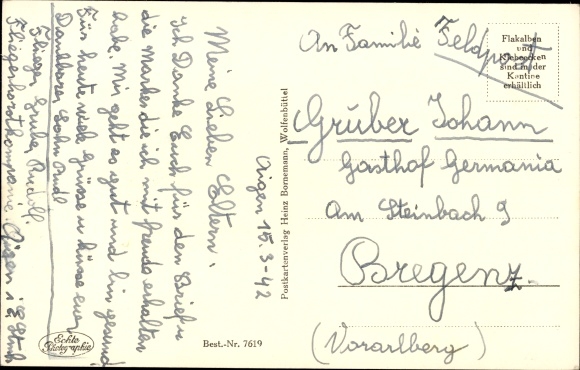 Aigen 15.3-42
Meine Lieben Eltern!
Ich Danke Euch für den Brief u
die Marken die ich mit freude erhalten
habe. Mir geht es gut und bin gesund
Für heute viele Grüsse u Küsse euer
Dankbarer Sohn Rudl
Flieger Gruber Rudolf.
Fliegerhorstkompanie Aigen i/E Stmk
Echte
Photographie
Best.-Nr. 7619
Postkartenverlag Heinz Bornemann, Wolfenbüttel
Feldpost
Flakalben
und
Klebeecken
sind in der
Kantine
erhältlich
An Familie
Gruber Johann
Gasthof Germania
Am Steinbach 9
Bregenz.
(Vorarlberg)